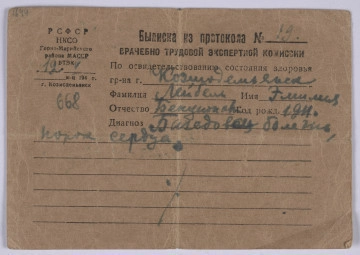 РСФСР
НКСО
Горно-Марийского
района МАССР
194 г.
г. Козмодемьянск
668
Выписка из протокола № 19.
ВРАЧЕБНО ТРУДОВОЙ ЭКСПЕРТНОЙ КОМИССИИ
По освидетельствованию состояния здоровья
гр-на г. Козмодемьянска
Фамилия Имя Эмилия
Отчество Год рожд. 1911.
Диагноз Базедовая болезнь,
порок сердца.